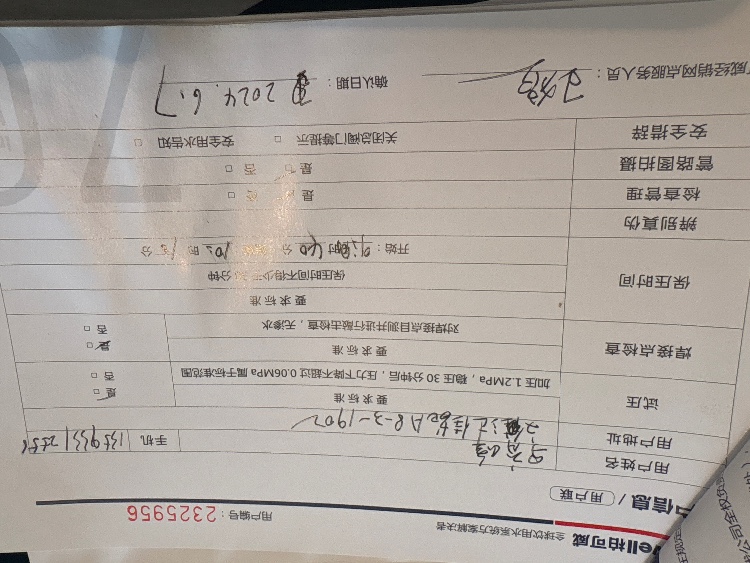 ell柏可威 全球饮用水系统方案解决者
用户编号：2325956
信息 / 用户联
用户姓名
手机
用户地址 A8-3-1902
试压
要求标准
加压1.2MPa，稳压30分钟后，压力下降不超过0.06MPa属于标准范围
是 □
否 □
焊接点检查
要求标准
对焊接点目测并进行敲击检查，无渗水
是 □
否 □
保压时间
要求标准
保压时间不得少于30分钟
开始：9时40分 10时 分
辨别真伪
检查管理 是 □ 否 □
管路图拍摄 是 □ 否 □
安全措辞 关闭总阀门等提示 □ 安全用水告知 □
威经销网点服务人员：
确认日期：2024.6.7